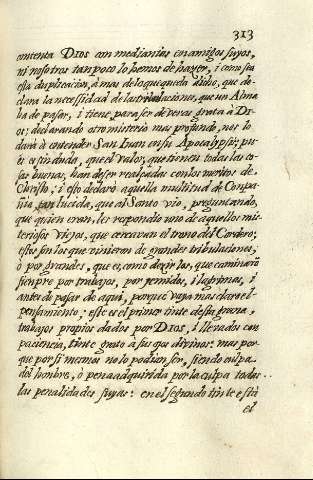 313
contenta DIOS con mediantias con amigos suyos,
ni nosotros tampoco lo hemos de hazer, i como sea
esta duplicacion, à mas de lo que queda dicho, que de-
clara la necessidad de las tribulaciones, que un Alma
ha de pasar, i tiene para ser de veras grata à DI-
OS; declarando otro misterio mas profundo, nos lo
darà à entender San Iuan en su Apocalypsi; pu-
es es sin duda, que el valor, que tienen todas las co-
sas buenas, han de ser realçadas con los meritos de
Christo; i eso declarò aquella multitud de Conpa-
ñia tan lucida, que al Santo vio, preguntando,
que quien eran, les respondio uno de aquellos mis-
teriosos viejos, que cercavan el trono del Cordero;
estos son los que vinieron de grandes tribulaciones;
ò por grandes, que es, como dezir los, que caminarõ
sienpre por trabajos, por gemidos, i lagrimas, i
antes de pasar de aqui, porque vaya mas claro el
pensamiento; este es el primer tinte desta grana,
trabajos propios dados por DIOS, i llevados con
paciencia, tinte grato à sus ojos divinos: mas por-
que por si mesmos no lo podian ser, siendo culpa
del honbre, ò pena adquirida por la culpa todas
las penalidades suyas: en el segundo tinte està
el